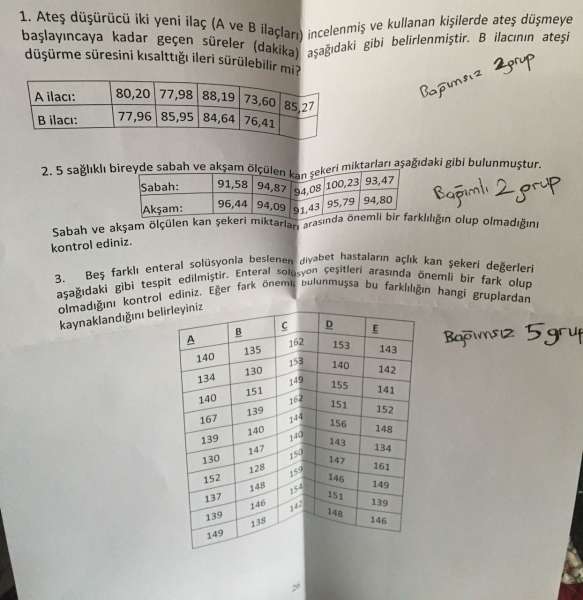 1. Ateş düşürücü iki yeni ilaç (A ve B ilaçları) incelenmiş ve kullanan kişilerde ateş düşmeye
başlayıncaya kadar geçen süreler (dakika) aşağıdaki gibi belirlenmiştir. B ilacının ateşi
düşürme süresini kısalttığı ileri sürülebilir mi?
Bağımsız 2 grup
A ilacı: 80,20 77,98 88,19 73,60 85,27
B ilacı: 77,96 85,95 84,64 76,41
2. 5 sağlıklı bireyde sabah ve akşam ölçülen kan şekeri miktarları aşağıdaki gibi bulunmuştur.
Sabah: 91,58 94,87 94,08 100,23 93,47
Akşam: 96,44 94,09 91,43 95,79 94,80
Bağımlı 2 grup
Sabah ve akşam ölçülen kan şekeri miktarları arasında önemli bir farklılığın olup olmadığını
kontrol ediniz.
3. Beş farklı enteral solüsyonla beslenen diyabet hastaların açlık kan şekeri değerleri
aşağıdaki gibi tespit edilmiştir. Enteral solüsyon çeşitleri arasında önemli bir fark olup
olmadığını kontrol ediniz. Eğer fark önemli bulunmuşsa bu farklılığın hangi gruplardan
kaynaklandığını belirleyiniz
Bağımsız 5 grup
A B C D E
140 135 162 153 143
134 130 153 140 142
140 151 149 155 141
167 139 162 151 152
139 140 144 156 148
130 147 140 143 134
152 128 150 147 161
137 148 159 146 149
139 146 154 151 139
149 138 142 148 146